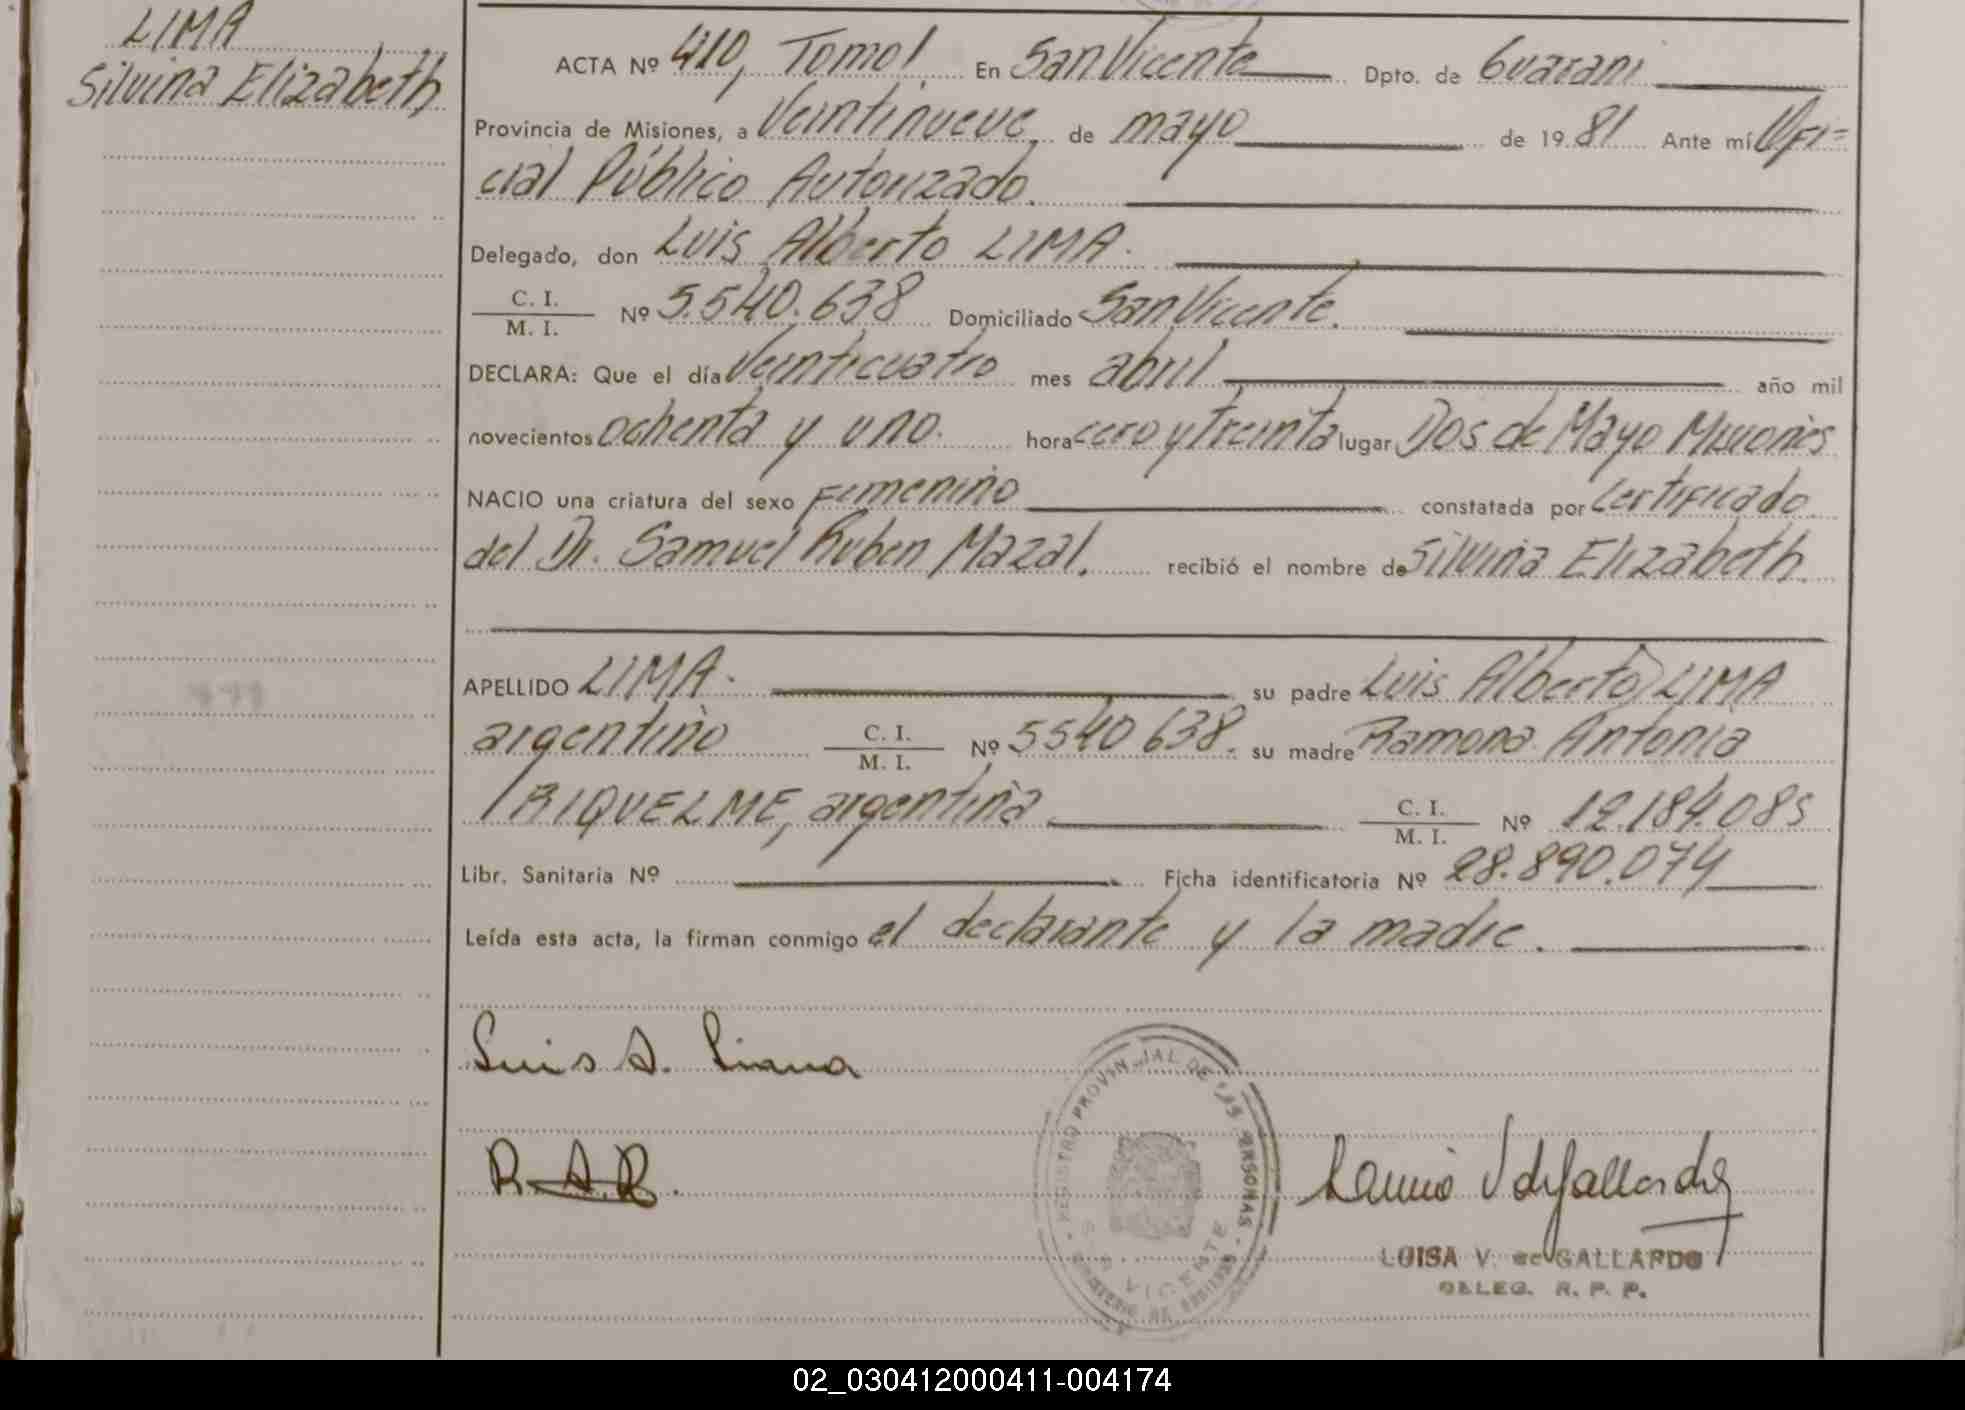 LIMA
Silvina Elizabeth
ACTA Nº 410, Tomo I En San Vicente Dpto. de Guarani
Provincia de Misiones, a Veintinueve de mayo de 1981 Ante mí Ofi=
cial Público Autorizado.
Delegado, don Luis Alberto LIMA.
C. I.
M. I. Nº 5.540.638 Domiciliado San Vicente.
DECLARA: Que el día Veinticuatro mes abril año mil
novecientos ochenta y uno. hora cero y treinta lugar Dos de Mayo Misiones
NACIO una criatura del sexo Femenino constatada por Certificado
del Dr. Samuel Ruben Mazal. recibió el nombre de Silvina Elizabeth.
APELLIDO LIMA. su padre Luis Alberto LIMA
argentino C. I.
M. I. Nº 5540638. su madre Ramona Antonia
RIQUELME, argentina C. I.
M. I. Nº 12.184.085
Libr. Sanitaria Nº Ficha identificatoria Nº 28.890.074
Leída esta acta, la firman conmigo el declarante y la madre.
Luis A. Lima
R.A.R.
REGISTRO PROVINCIAL DE LAS PERSONAS
VICENTE
LUISA V. de GALLARDO
DELEG. R. P. P.
02_030412000411-004174